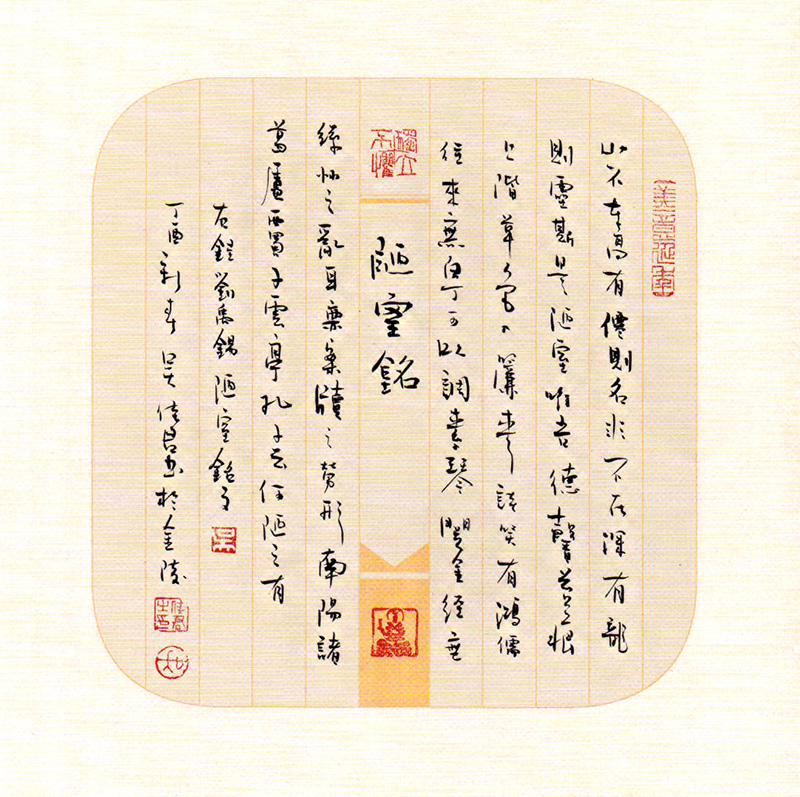 美意延年
山不在高有僊則名水不在深有龍
則靈斯是陋室唯吾德馨苔痕
上階草色入簾青談笑有鴻儒
往來無白丁可以調素琴閱金經無
獨立不懼
陋室銘
絲竹之亂耳無案牘之勞形南陽諸
葛廬西蜀子雲亭孔子云何陋之有
右錄劉禹錫陋室銘文
吳
丁酉新春吳佳君書於金陵